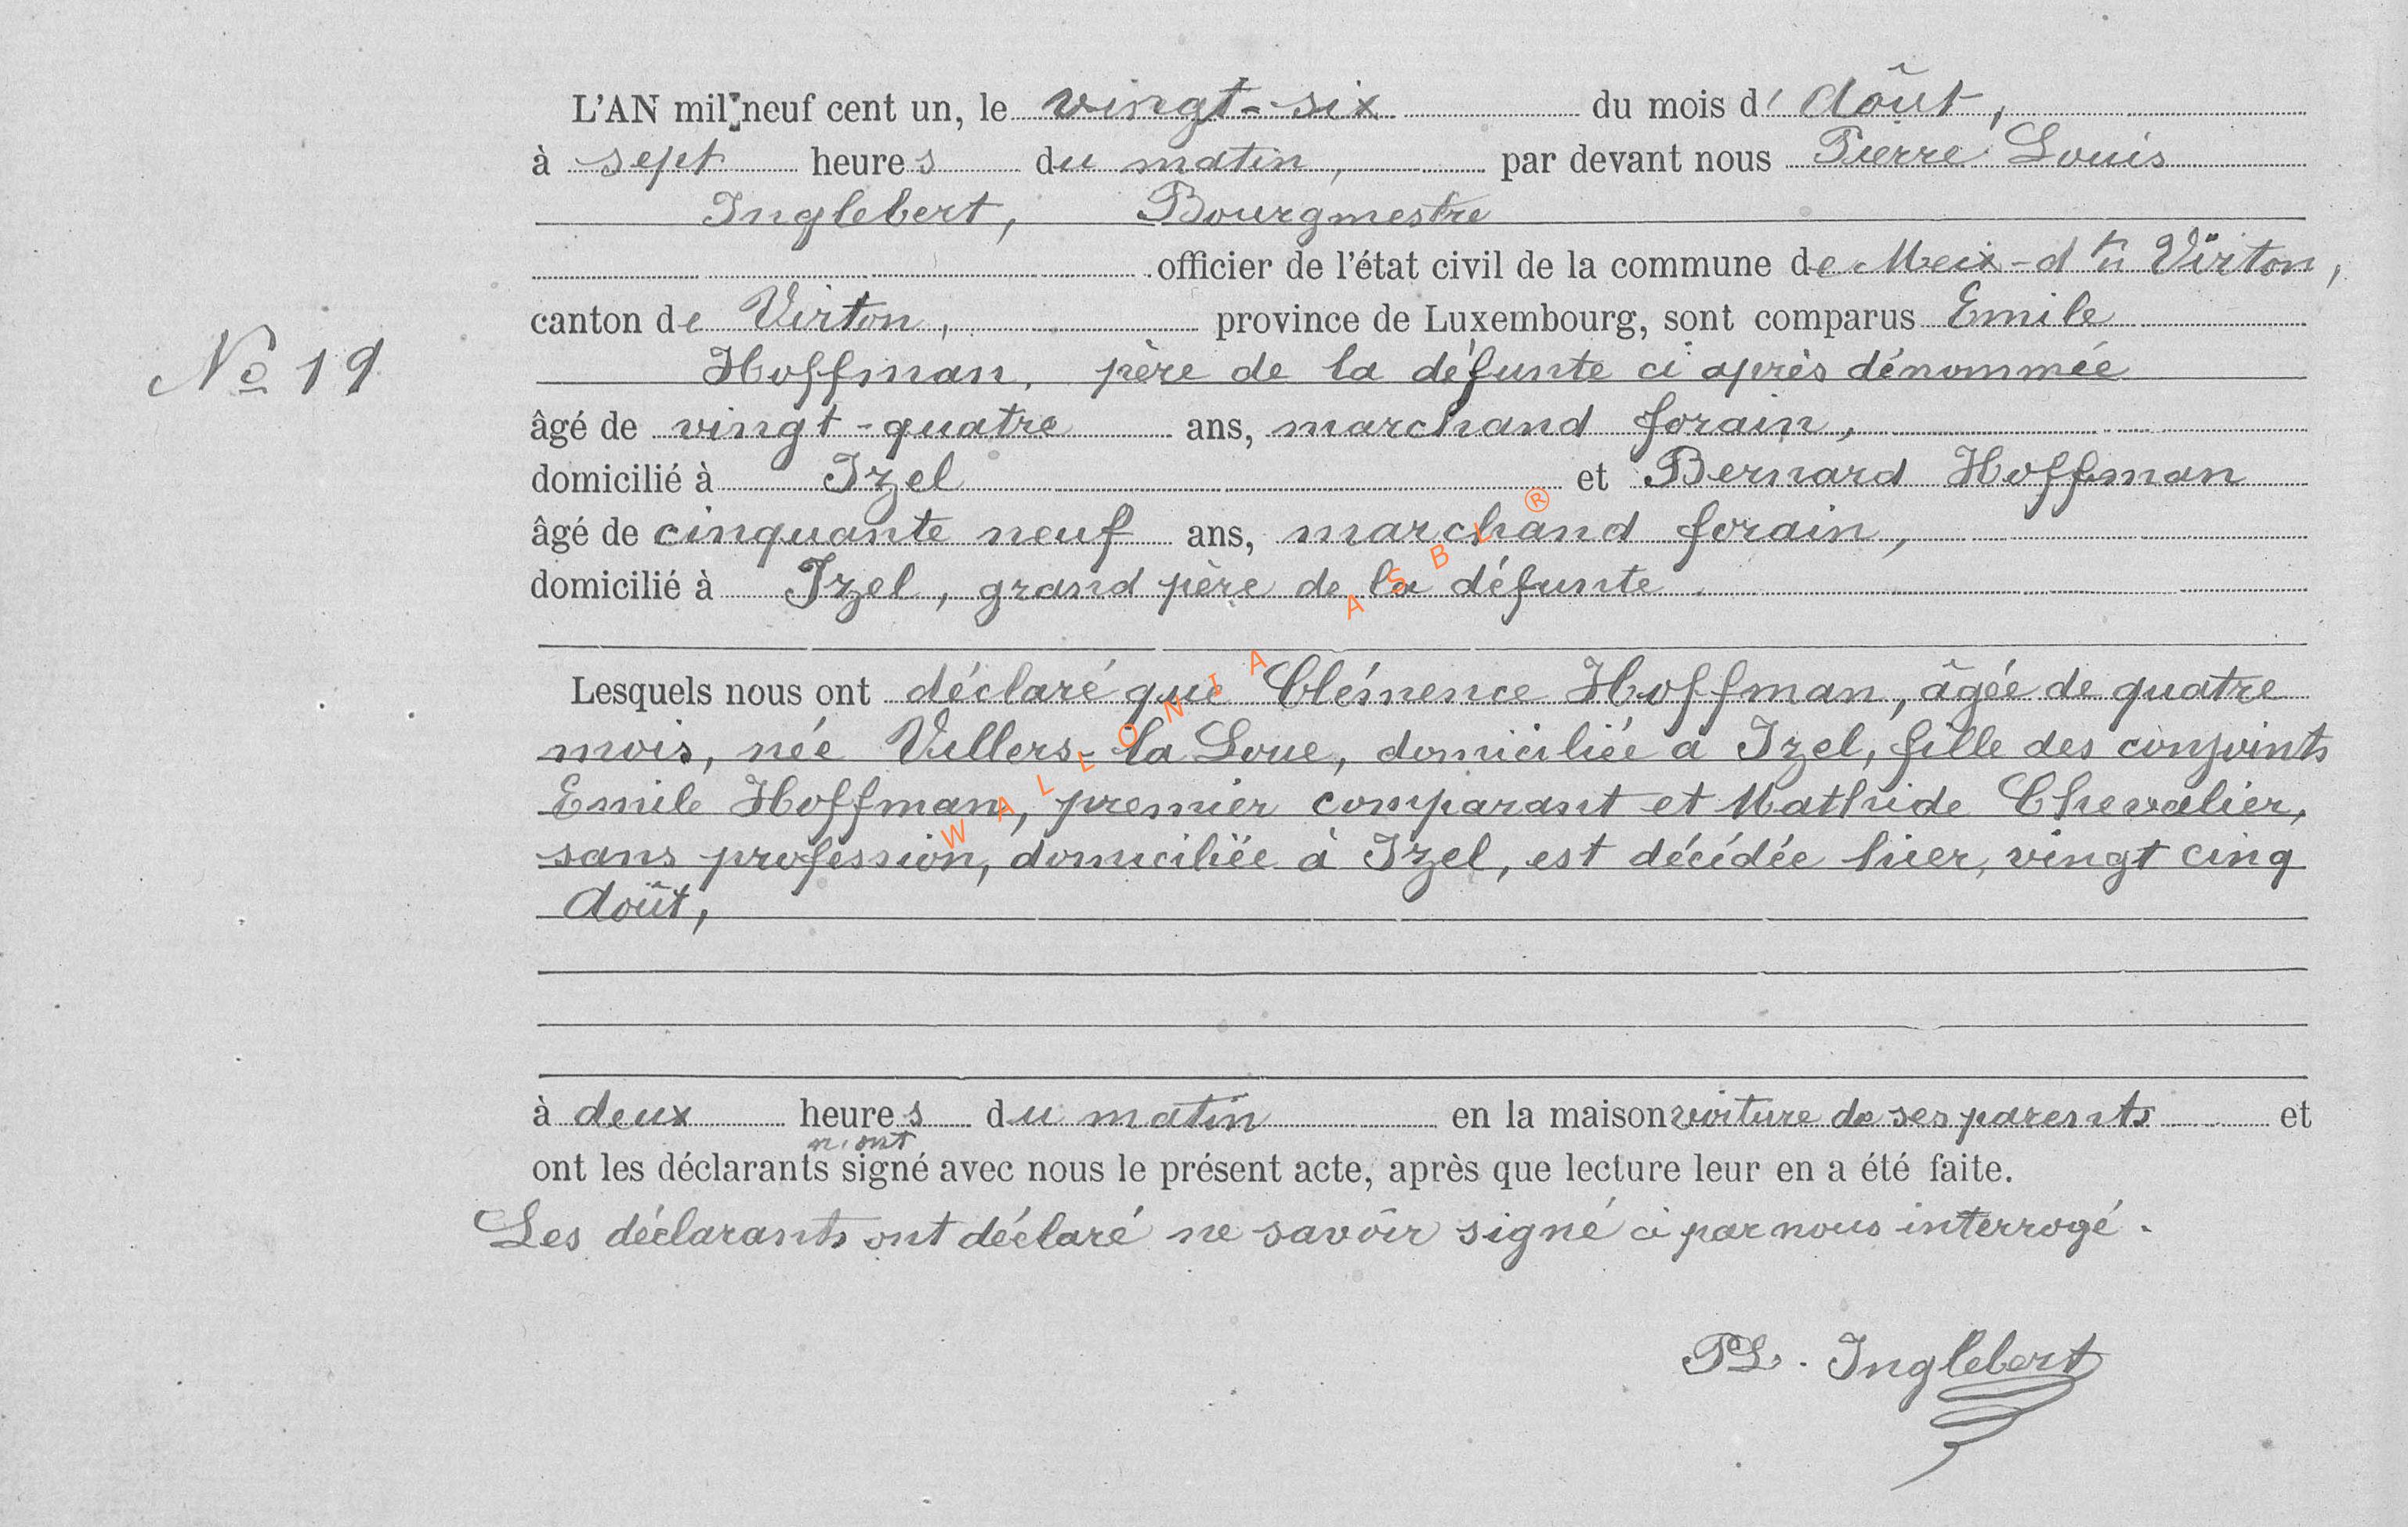 L'AN mil neuf cent un, le vingt-six du mois d' Août,
à sept heures du matin, par devant nous Pierre Louis
Inglebert, Bourgmestre
officier de l'état civil de la commune de Meix-dt Virton,
canton de Virton, province de Luxembourg, sont comparus Emile
No 19
Hoffman, père de la défunte ci après dénommée
âgé de vingt-quatre ans, marchand forain,
domicilié à Izel et Bernard Hoffman
âgé de cinquante neuf ans, marchand forain,
domicilié à Izel, grand père de la défunte.
Lesquels nous ont déclaré que Clémence Hoffman, âgée de quatre
mois, née Villers-la Loue, domiciliée à Izel, fille des conjoints
Emile Hoffman, premier comparant et Mathide Chevalier,
sans profession, domiciliée à Izel, est décédée hier, vingt cinq
Août,
à deux heures du matin en la maison voiture de ses parents et
n'ont
ont les déclarants signé avec nous le présent acte, après que lecture leur en a été faite.
Les déclarants ont déclaré ne savoir signé ci par nous interrogé.
PL. Inglebert
WALLONIA ASBL ®